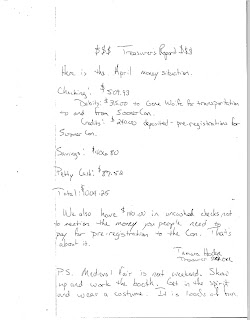 $$$ Treasurers Report $$$
Here is the April money situation.
Checking: $509.93
Debits: $35.00 to Gene Wolfe for transportation
to and from SoonerCon.
Credits: $240.00 deposited - pre-registrations for
SoonerCon.
Savings:
Petty Cash: $89.52
Total:
We also have $110.00 in uncashed checks, not
to mention the money you people need to
pay for pre-registration to the Con. That's
about it.
Tamara
Treasurer
P.S. Medieval Fair is next weekend. Show
up and work the booth. Get in the spirit
and wear a costume. It is loads of fun